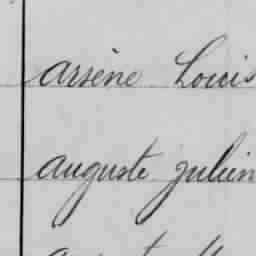 arsène Louis
auguste Julien